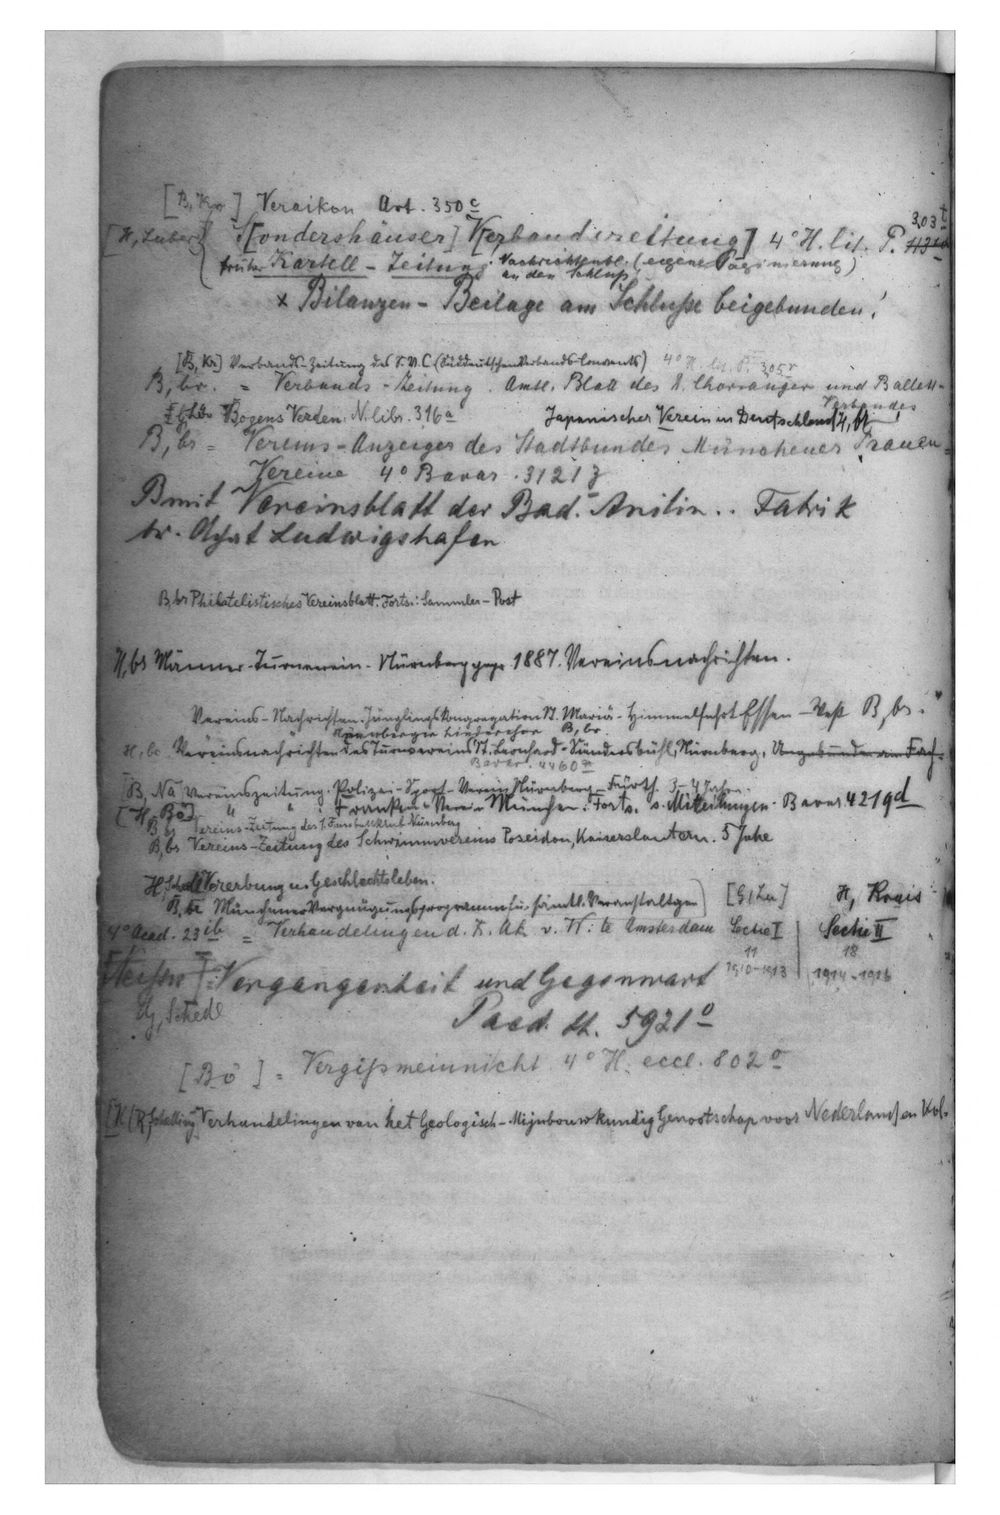 [B, Kr] Veraikon Art. 350 c
[H, Luber] S[ondershäuser] V[erbandszeitung] 4° H. lit. P. 303 t
früher Kartell-Zeitung. Nachrichtenbl. (eigene Paginierung)
an den Schluß
x Bilanzen-Beilage am Schluße beigebunden!
[B, Kr] Verbands-Zeitung des S.V.C. (Süddeutschen Verbands-Convents) 4° H. lit. P. 305 r
B, br. = Verbands-Zeitung. Amtl. Blatt des d. Chorsänger und Ballett-
Verbandes
Bogens Verden. N. libr. 316 a Japanischer Verein in Deutschland
B, br = Vereins-Anzeiger des Stadtbundes Münchener Frauen=
Vereine 4° Bavar. 3121 z
B mit Vereinsblatt der Bad. Anilin.. Fabrik
br. Ludwigshafen
B, br Philatelistisches Vereinsblatt. Forts.: Sammler-Post
H, br Männer-Turnverein-Nürnberg gegr. 1887. Vereinsnachrichten.
Vereins-Nachrichten. Jünglingskongregation St. Mariä-Himmelfahrt Essen-West B, br.
Nürnberger Liederchor B, br.
H, br Vereinsnachrichten des Turnvereins St. Leonhard-Sündersbühl, Nürnberg.
Bavar. 4460 m
[B, Na Vereinszeitung. Polizei-Sport-Verein Nürnberg-Fürth. 3-4 Jahr.
[H, Bö] " " Franken Verein München. Forts. s. Mitteilungen. Bavar 4219 d
B, br Vereins-Zeitung des 1. Fussballklub Nürnberg
B, br Vereins-Zeitung des Schwimmvereins Poseidon, Kaiserslautern. 5 Jahre
H, Schedl Vererbung u. Geschlechtsleben.
B, br Münchener Vergnügungsprogramm für sämtl. Veranstaltgen [G, Lu] H, Regis
4° Acad. 23 ib = Verhandelingen d. K. Ak. v. W. te Amsterdam Sectie I | Sectie II
11 18
1910-1913 1914-1916
= Vergangenheit und Gegenwart
G, Schedl Paed. Th. 5921 o
[Bö] = Vergißmeinnicht 4° H. eccl. 802 o
Verhandelingen van het Geologisch-Mijnbouwkundig Genootschap voor Nederland en Kol.